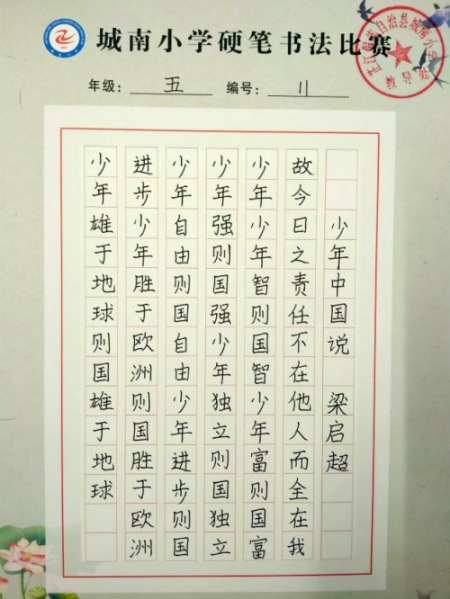 城南小学硬笔书法比赛
年级：五 编号：11
少年中国说 梁启超
故今日之责任不在他人而全在我
少年少年智则国智少年富则国富
少年强则国强少年独立则国独立
少年自由则国自由少年进步则国
进步少年胜于欧洲则国胜于欧洲
少年雄于地球则国雄于地球